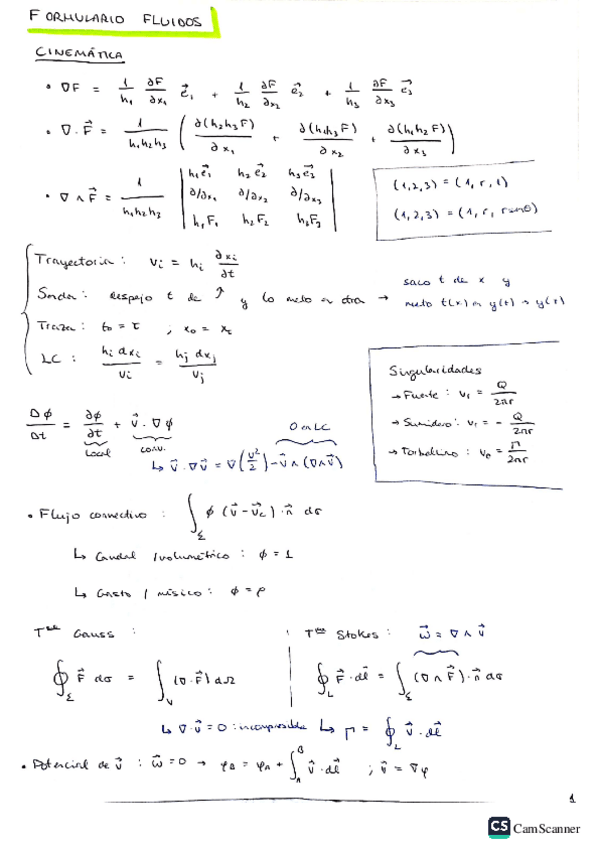 FORMULARIO FLUIDOS
CINEMÁTICA
• ∇F = 1/h₁ ∂F/∂x₁ e⃗₁ + 1/h₂ ∂F/∂x₂ e⃗₂ + 1/h₃ ∂F/∂x₃ e⃗₃
• ∇·F⃗ = 1/(h₁h₂h₃) (∂(h₂h₃F)/∂x₁ + ∂(h₁h₃F)/∂x₂ + ∂(h₁h₂F)/∂x₃)
• ∇∧F⃗ = 1/(h₁h₂h₃) | h₁e⃗₁ h₂e⃗₂ h₃e⃗₃ |
| ∂/∂x₁ ∂/∂x₂ ∂/∂x₃ |
| h₁F₁ h₂F₂ h₃F₃ |
(1,2,3) = (1, r, 1)
(1,2,3) = (1, r, r senθ)
Trayectoria: vᵢ = hᵢ ∂xᵢ/∂t
Senda: despejo t de ↑ y lo meto en otra → saco t de x y
meto t(x) en y(t) → y(t)
Traza: t₀ = τ , x₀ = xₜ
LC: hᵢ dxᵢ/vᵢ = hⱼ dxⱼ/vⱼ
Singularidades
→ Fuente: vᵣ = Q/2πr
→ Sumidero: vᵣ = - Q/2πr
→ Torbellino: v_θ = Γ/2πr
Dϕ/Dt = ∂ϕ/∂t + v⃗·∇ϕ
local conv.
0 en LC
↳ v⃗·∇v⃗ = ∇(v²/2) - v⃗∧(∇∧v⃗)
• Flujo convectivo: ∫_Σ ϕ (v⃗ - v⃗_c)·n⃗ dσ
↳ Caudal / volumétrico: ϕ = 1
↳ Gasto / másico: ϕ = ρ
Tᵐᵃ Gauss:
∮_Σ F⃗ dσ = ∫_V (∇·F⃗) dΩ
Tᵐᵃ Stokes: ω⃗ = ∇∧v⃗
∮_L F⃗·dl⃗ = ∫_Σ (∇∧F⃗)·n⃗ dσ
↳ ∇·v⃗ = 0: incompresible
↳ Γ = ∮_L v⃗·dl⃗
• Potencial de v⃗: ω⃗ = 0 → φ_B = φ_A + ∫_A^B v⃗·dl⃗ ; v⃗ = ∇φ
1
CS CamScanner